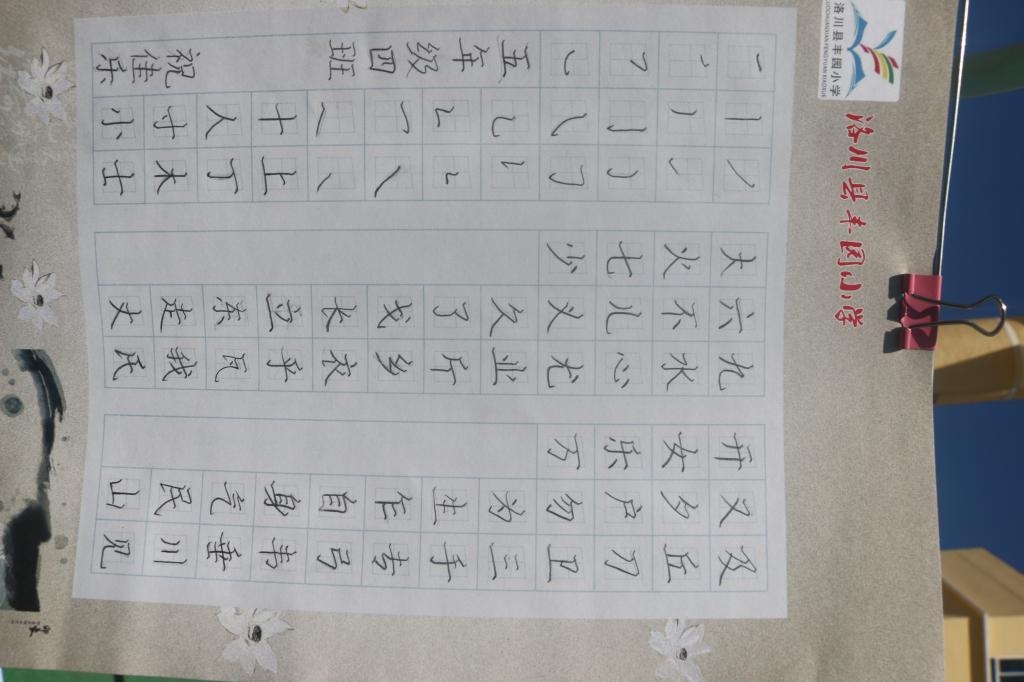 洛川县丰园小学
LUOCHUANXIAN FENGYUAN XIAOXUE
洛川县丰园小学
及丘刃卫三手去弓韦垂川见
又夕户勿为生作自身气民山
开女乐万
九水心尤业斤乡衣乎瓦我民
六不儿义久了戈长立东走丈
大火七少
上丁木士
十人寸小
五年级四班 祝佳乐